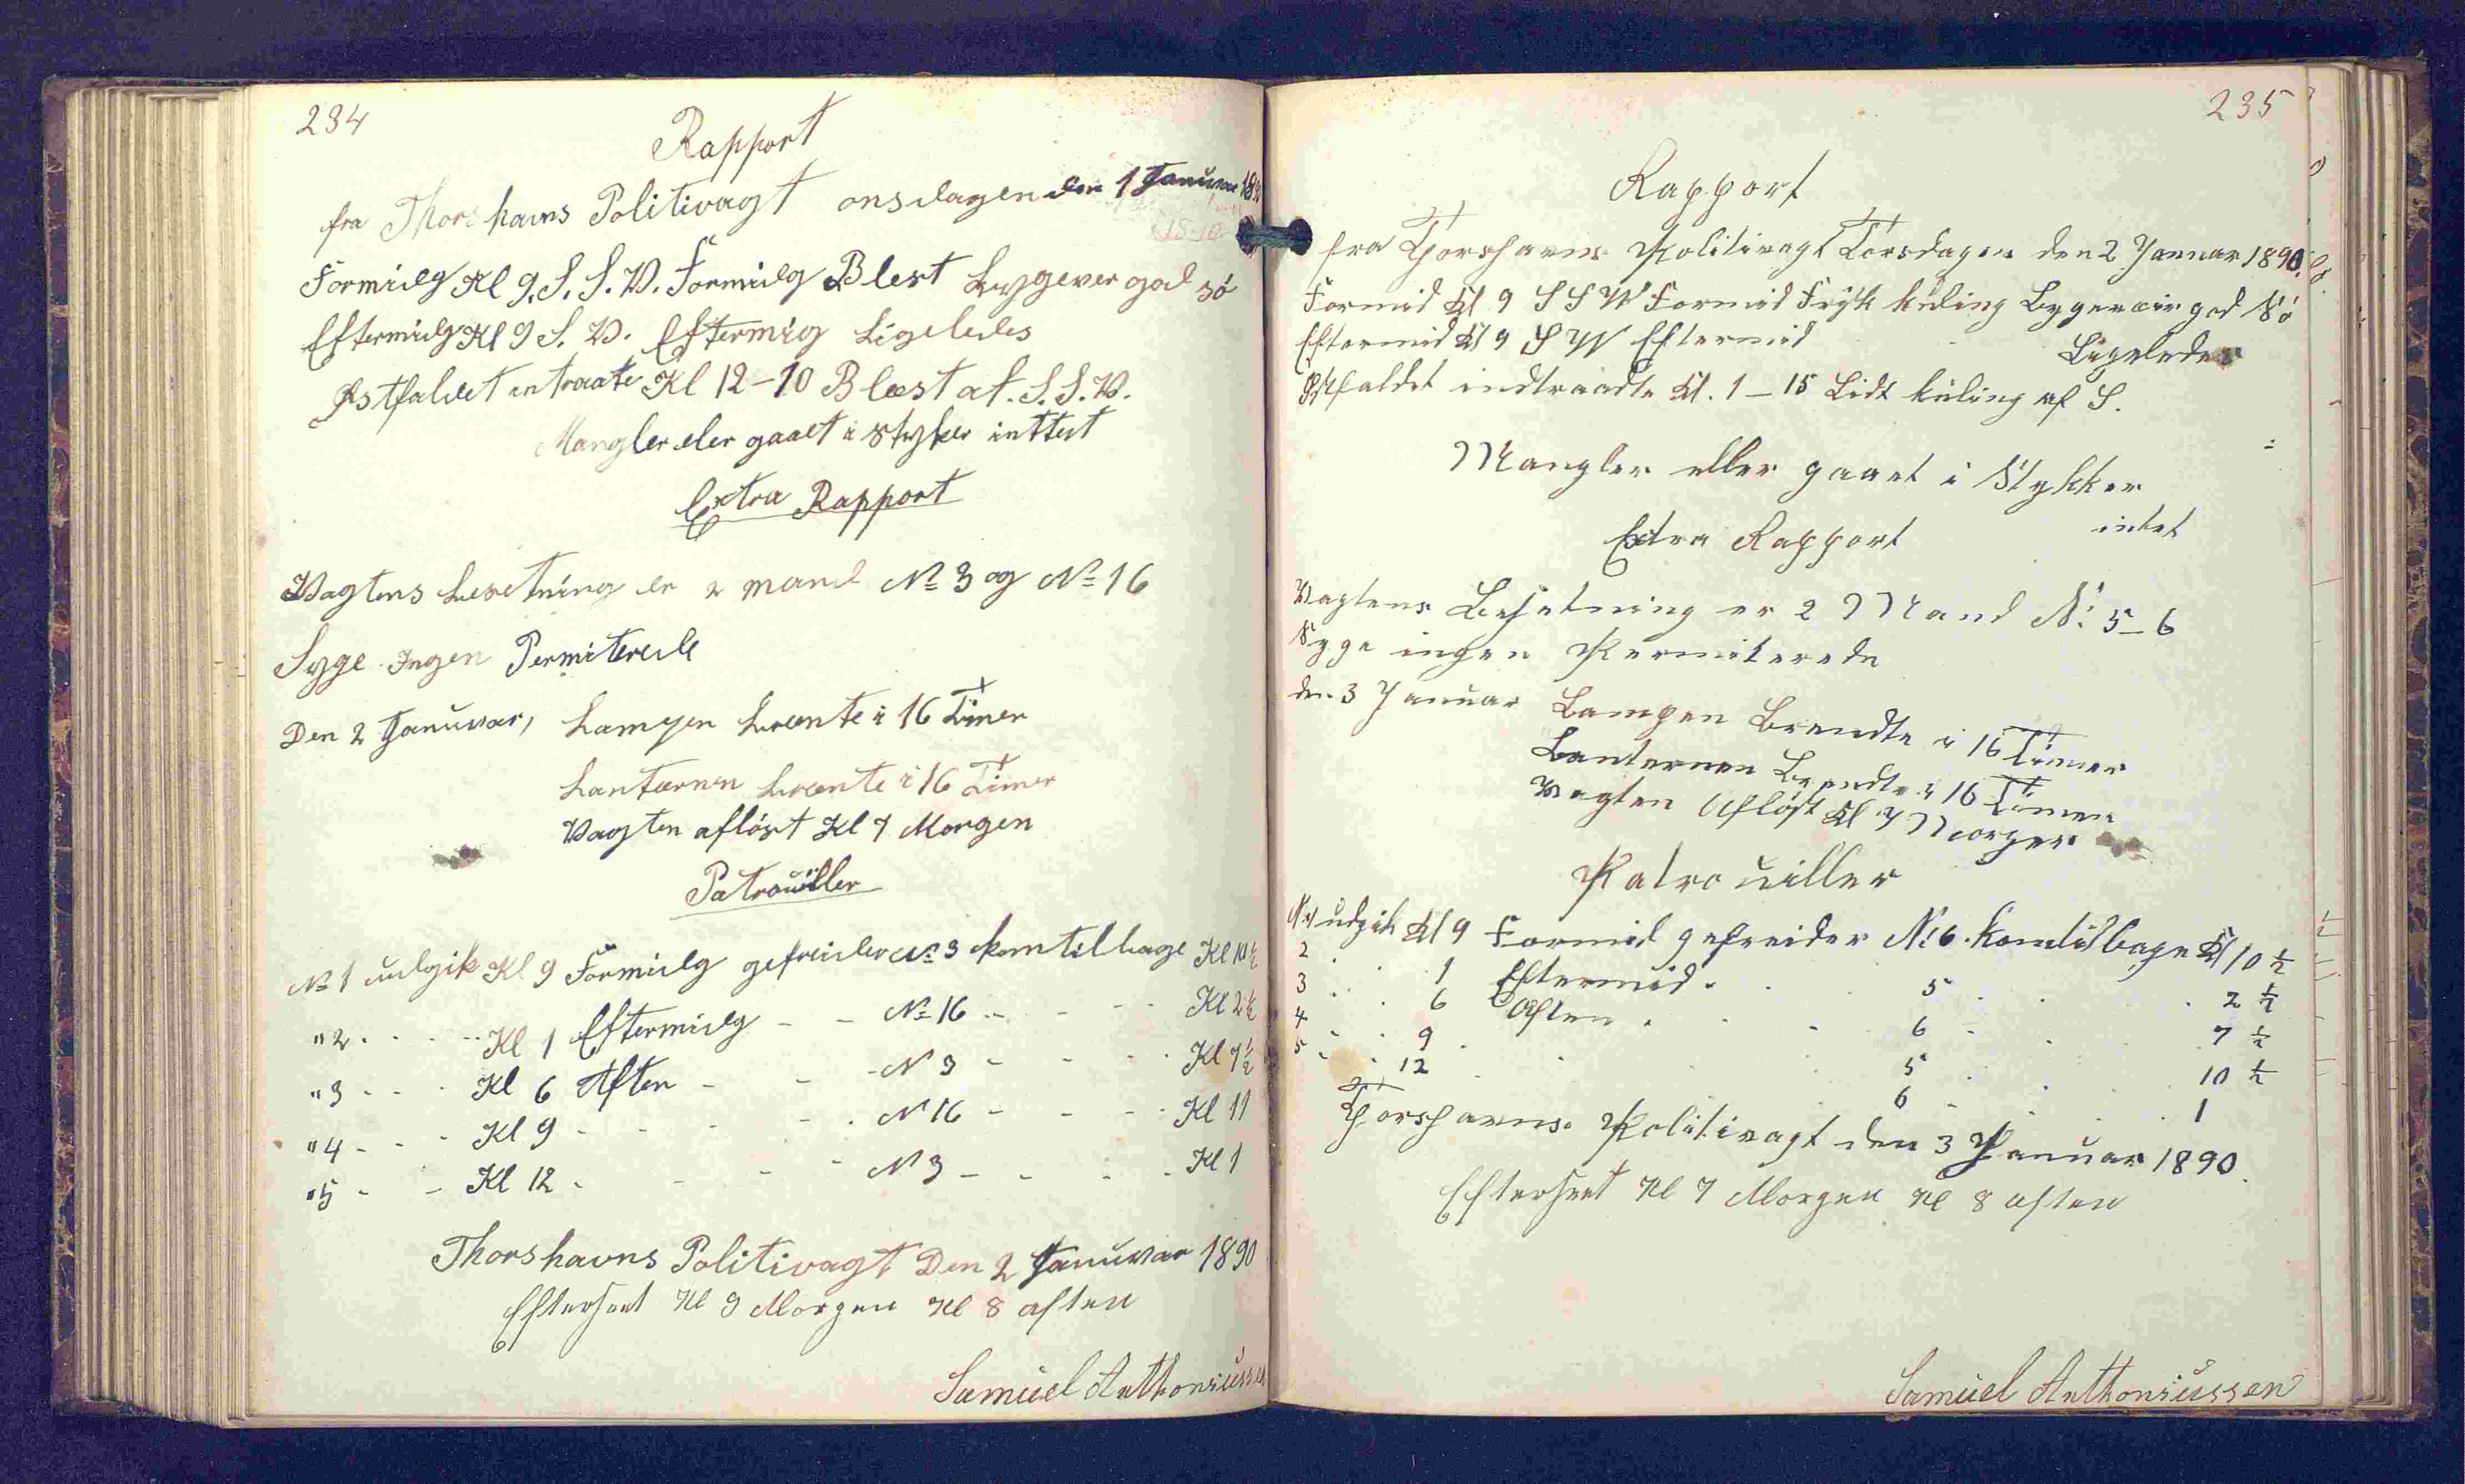 234
Rapport
fra Thorshavns Politivagt onsdagen den 1 Januvar
Formidg Kl 9. S. S. V. Formidg Blest Bygever god sö
Eftermidg Kl 9 S. V. Eftermig Ligeledes
Østfaldet intraate Kl 12-10 Blæst af. S. S. V.
Mangler eler gaaet i styker inttet
Extra Rapport
Vagtens besetning er 2 mand No 3 og No 16
Syge Ingen Permiterede
Den 2 Januvar, Lampen brænte i 16 Timer
Lanternen brænte i 16 Timer
Vagten afløst Kl 7 Morgen
Patrouiller
No 1 udgik Kl 9 Formidg gefreider No 3 kom tilbage Kl 10½
"2 . . . . Kl 1 Eftermidg - - No 16 - - - Kl 2½
"3 - - - Kl 6 Aften - - - N 3 - - - Kl 7½
"4 - - - Kl 9 - - - - N 16 - - - Kl 11
"5 - - Kl 12 - - - - N 3 - - - - Kl 1
Thorshavns Politivagt Den 2 Januvar 1890
Efterseet Kl 9 Morgen Kl 8 aften
Samuel Anthoniussen
235
Rapport
fra Thorshavns Politivagt Torsdagen den 2 Januar 1890
Formid Kl 9 S S W Formid Frisk kuling Bygeveir god Sö
Eftermid Kl 9 S W Eftermid Ligeledes
Østfaldet indtraadte Kl. 1-15 Lidt kuling af S.
Mangler eller gaaet i Stykker
intet
Extra Rapport
Vagtens Besetning er 2 Mand N: 5-6
Syge ingen Permiterede
den 3 Januar Lampen Brendte i 16 Timer
Lanternen Brendte i 16 Timer
Vagten Afløst Kl 7 Morgen
Patrouiller
N1 udgik Kl 9 Formid gefreider N: 6. kom tilbage Kl 10 ½
2 . . 1 Eftermid . . 5 . . . 2 ½
3 . . 6 Aften . . . 6 . . . 7 ½
4 . . 9 . . . 5 . . . 10 ½
5 . . 12 . . . 6 . . . 1
Thorshavns Politivagt den 3 Januar 1890.
Efterseet Kl 7 Morgen Kl 8 aften
Samuel Anthoniussen